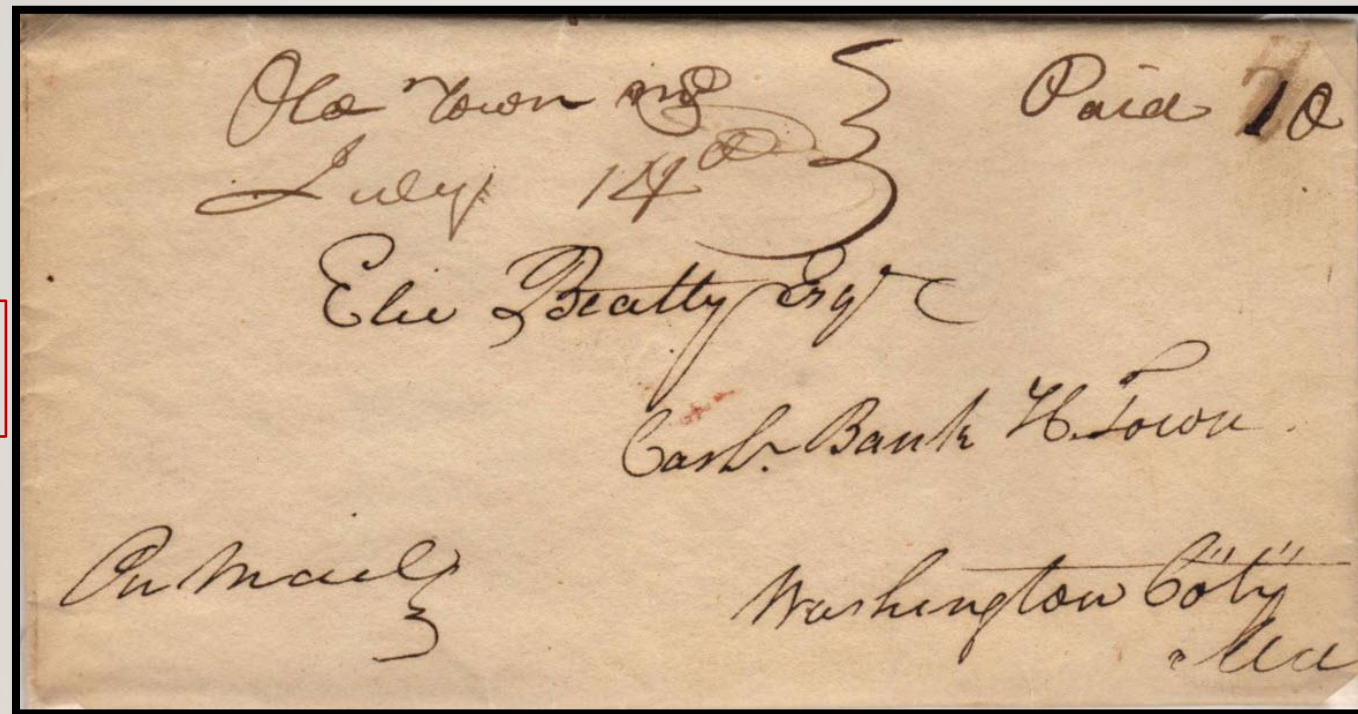 Old Town Md
Paid 10
July 14th
Elie Beatty Esqr
Cash. Bank H. Town
Pr Mail
Washington Coty
Md